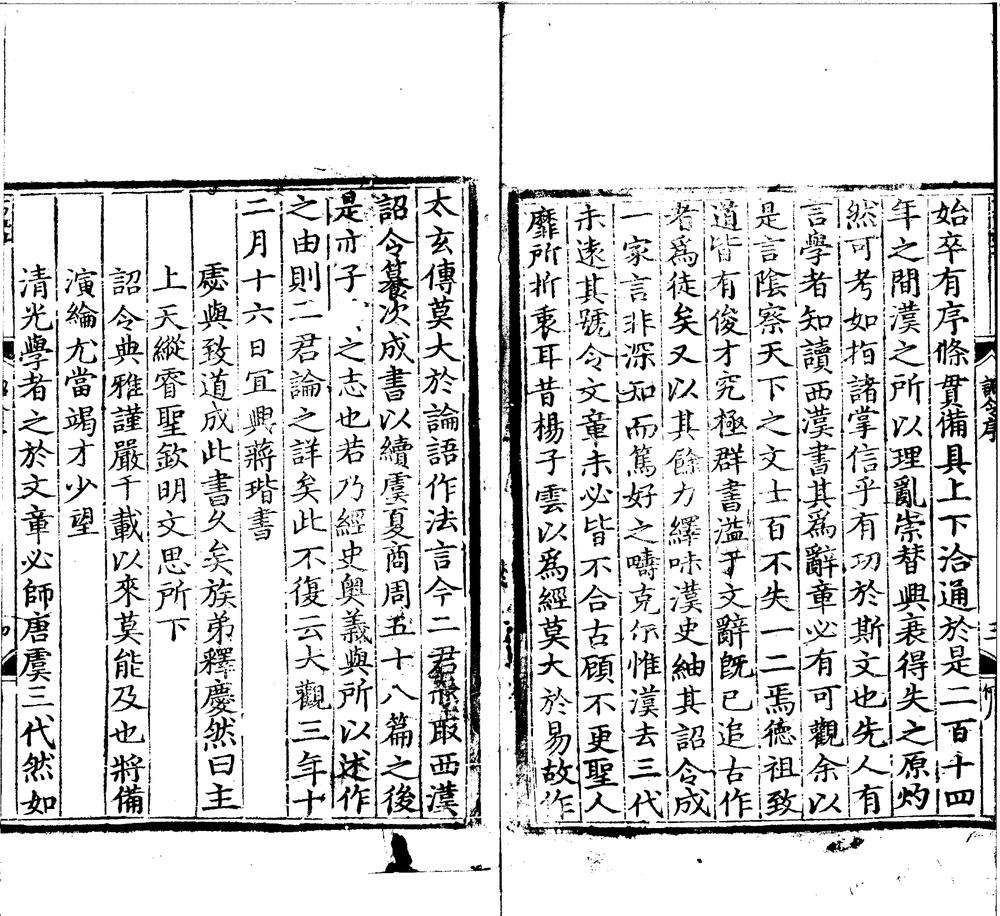 始卒有序條貫備具上下洽通於是二百十四
年之間漢之所以理亂崇替興衰得失之原灼
然可考如指諸掌信乎有功於斯文也先人有
言學者知讀西漢書其爲辭章必有可觀余以
是言陰察天下之文士百不失一二焉德祖致
道皆有俊才究極群書溢于文辭旣已追古作
者爲徒矣又以其餘力繹味漢史紬其詔令成
一家言非深知而篤好之疇克尒惟漢去三代
未遠其號令文章未必皆不合古顧不更聖人
靡所折衷耳昔楊子雲以爲經莫大於易故作
太玄傳莫大於論語作法言今二君取西漢
詔令纂次成書以續虞夏商周五十八篇之後
是亦子之志也若乃經史奥義與所以述作
之由則二君論之詳矣此不復云大觀三年十
二月十六日宜興蔣瑎書
處與致道成此書久矣族弟釋慶然曰主
上天縱睿聖欽明文思所下
詔令典雅謹嚴千載以來莫能及也將備
演綸尤當竭才少望
清光學者之於文章必師唐虞三代然如
詔令序
三